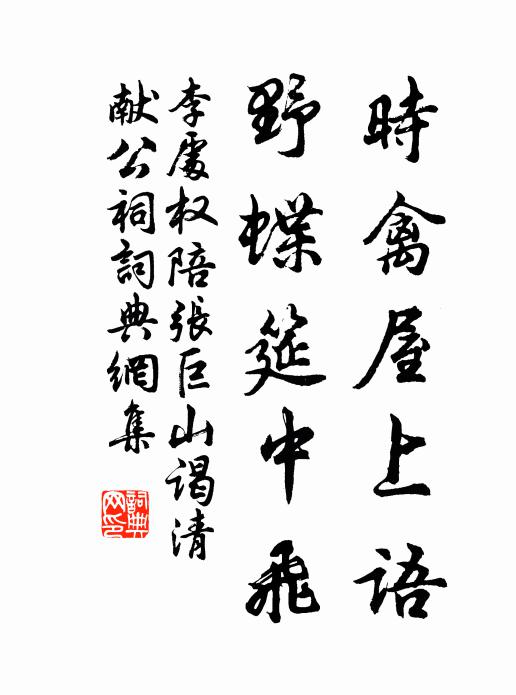 時禽屋上語
野蝶筵中飛
李處权陪張巨山謁清
献公祠詞典網集
詞典网印